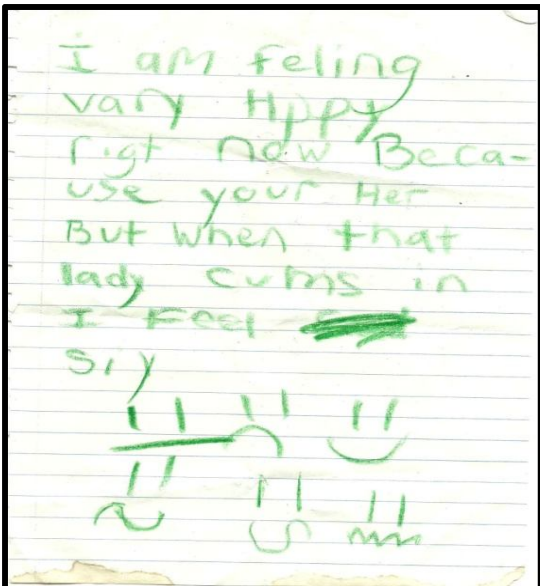 I am feling
vary Hppy
rigt now Beca-
use your Her
But when that
lady cums in
I Feel
sry